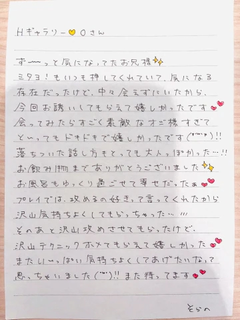 Hギャラリー💛Oさん
ずーっと気になってたお兄様✨
ミタヨ!もいつも押してくれていて、気になる
存在だったけど、中々会えずにいたから、
今回お誘いしてもらえて嬉しかったです💕
会ってみたらすごく素敵なオジ様すぎて
とーってもドキドキで嬉しかったです
落ちついた話し方もとっても大人っぽかったー!!
お飲み物までありがとうございました✨
お風呂もゆっくり過ごせて幸せだったぁ💕
プレイでは、攻めるの好きって言ってくれたから
沢山気持ちよくしてもらっちゃったー!!!
そのあと沢山攻めさせてもらったけど、
沢山テクニックホメてもらえて嬉しかった💕
またいーっぱい気持ちよくしてあげたいなって
思っちゃいました また待ってます💕
そらへ